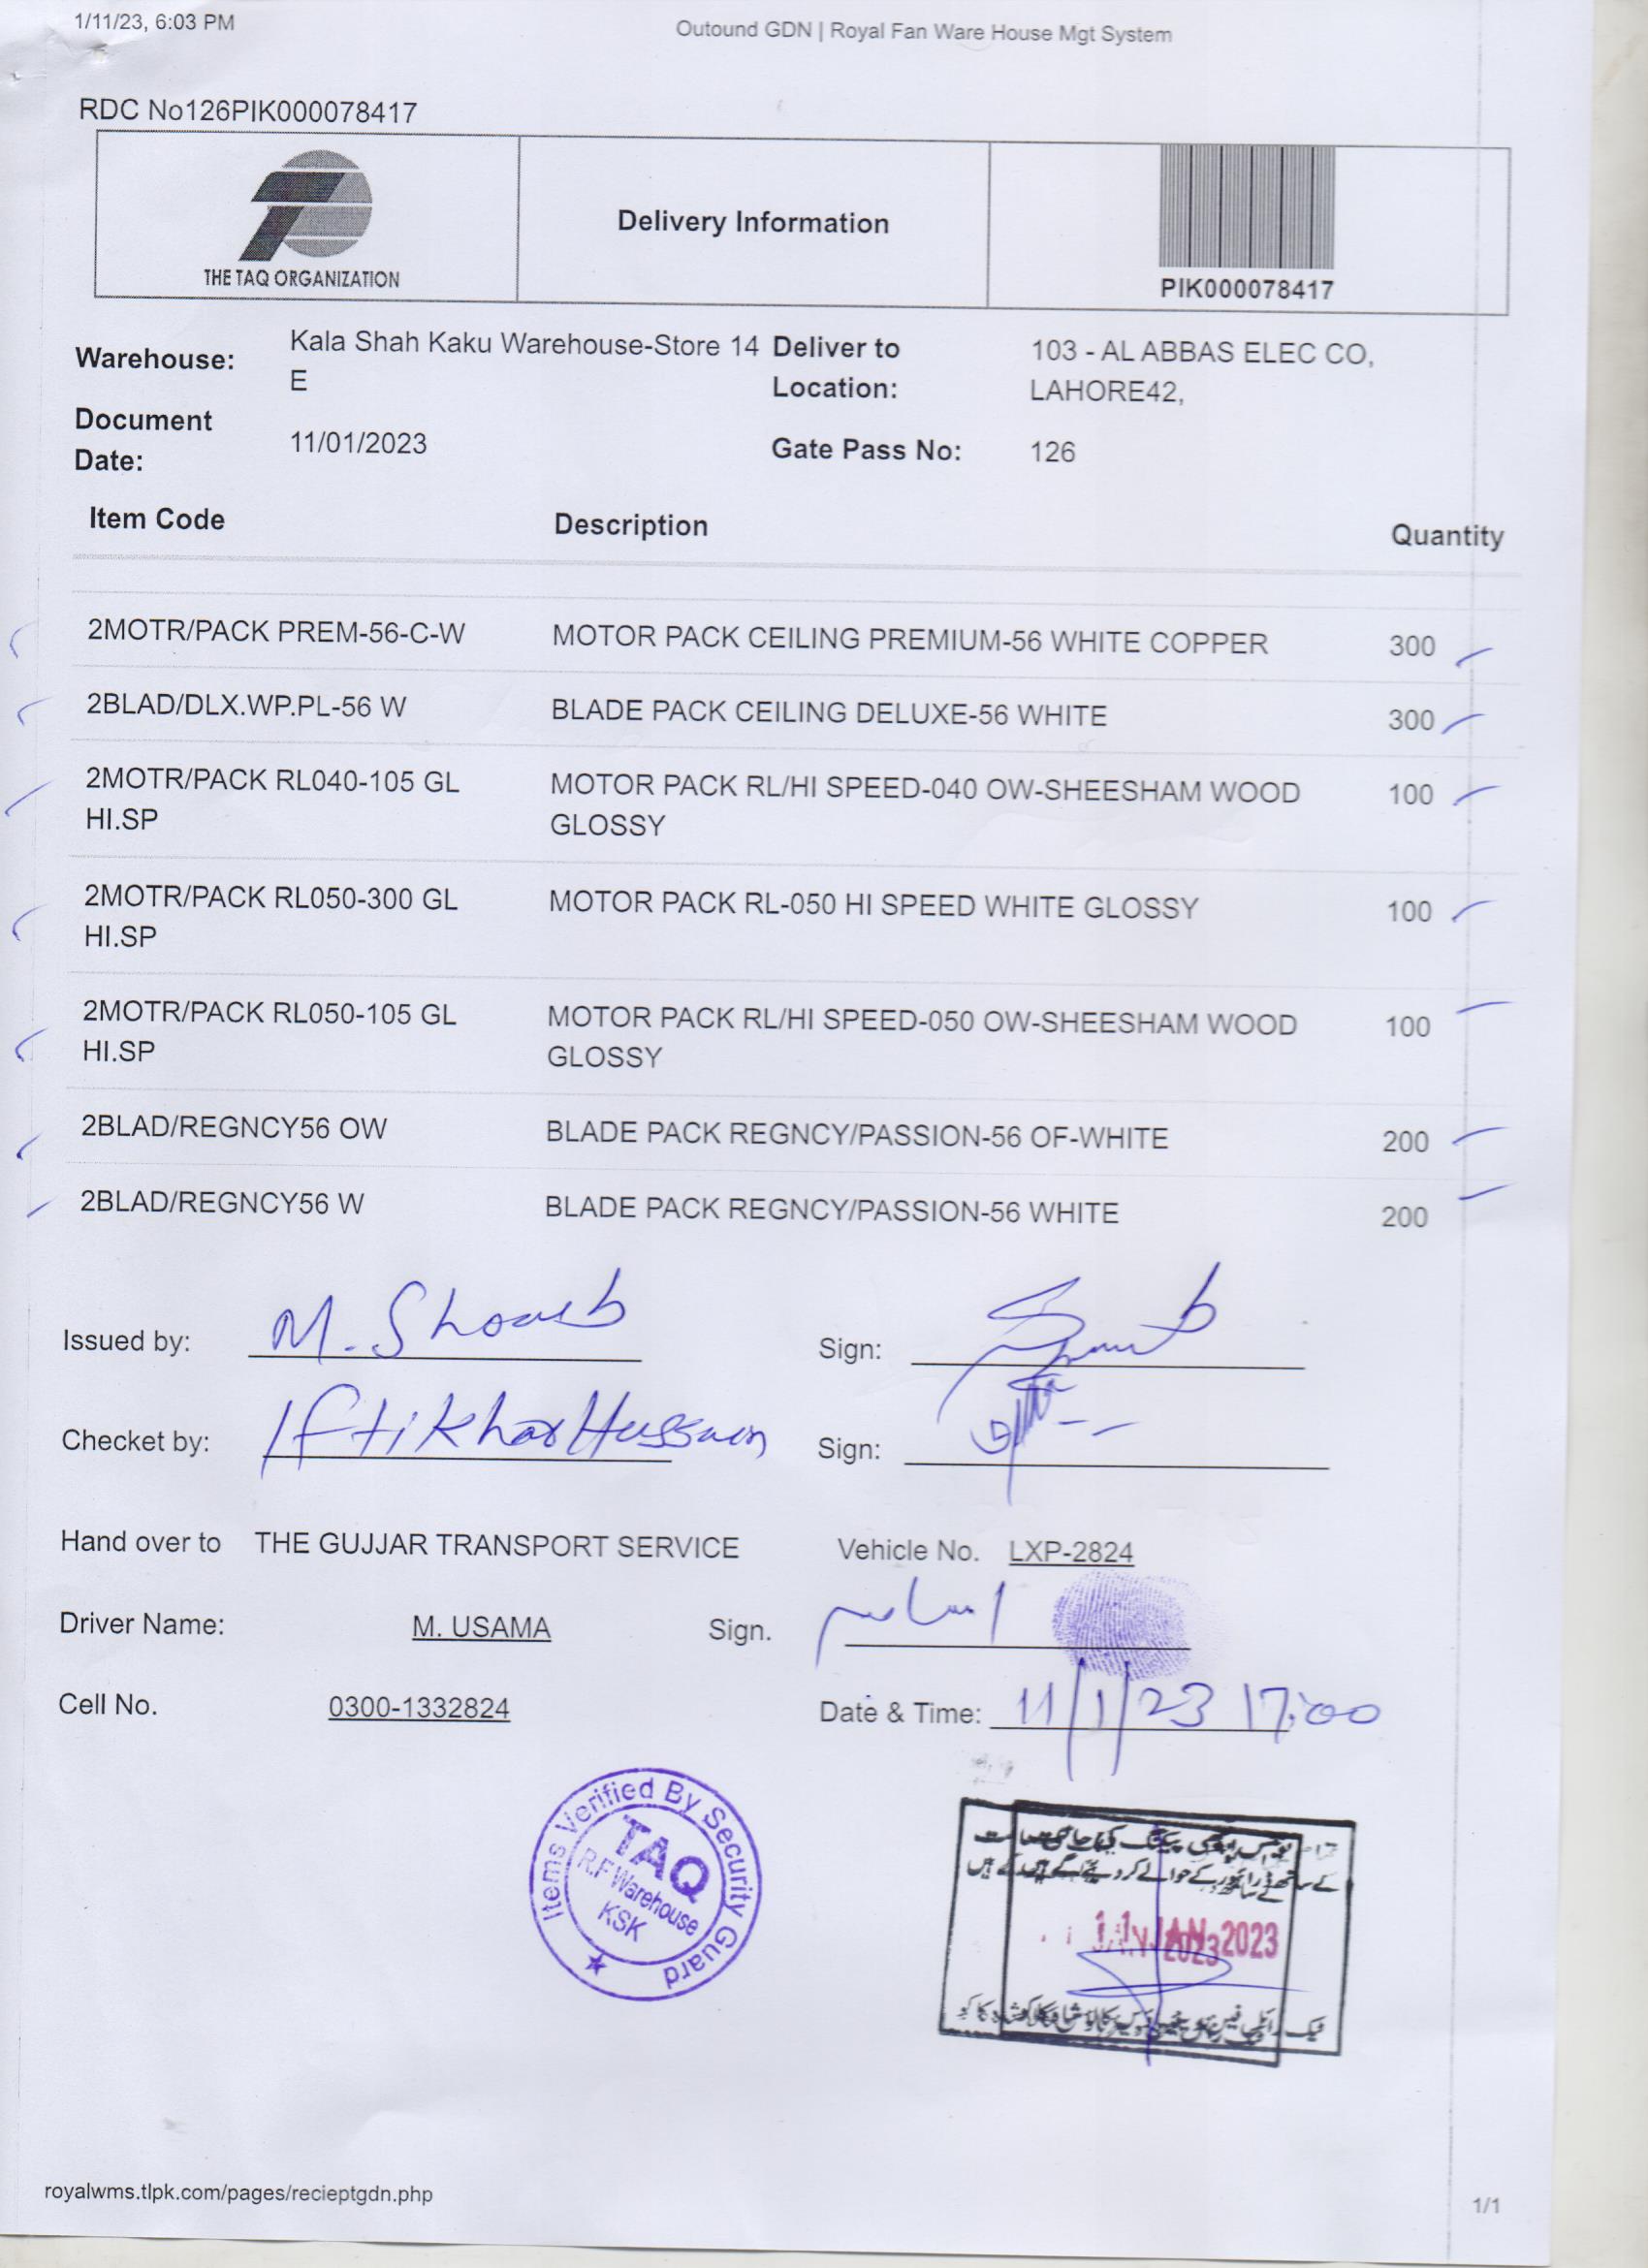 1/11/23, 6:03 PM
Outound GDN | Royal Fan Ware House Mgt System
RDC No126PIK000078417
THE TAQ ORGANIZATION
Delivery Information
PIK000078417
Warehouse: Kala Shah Kaku Warehouse-Store 14 E
Deliver to Location: 103 - AL ABBAS ELEC CO, LAHORE42,
Document Date: 11/01/2023
Gate Pass No: 126
Item Code Description Quantity
2MOTR/PACK PREM-56-C-W MOTOR PACK CEILING PREMIUM-56 WHITE COPPER 300
2BLAD/DLX.WP.PL-56 W BLADE PACK CEILING DELUXE-56 WHITE 300
2MOTR/PACK RL040-105 GL HI.SP MOTOR PACK RL/HI SPEED-040 OW-SHEESHAM WOOD GLOSSY 100
2MOTR/PACK RL050-300 GL HI.SP MOTOR PACK RL-050 HI SPEED WHITE GLOSSY 100
2MOTR/PACK RL050-105 GL HI.SP MOTOR PACK RL/HI SPEED-050 OW-SHEESHAM WOOD GLOSSY 100
2BLAD/REGNCY56 OW BLADE PACK REGNCY/PASSION-56 OF-WHITE 200
2BLAD/REGNCY56 W BLADE PACK REGNCY/PASSION-56 WHITE 200
Issued by: M. Shoaib Sign:
Checket by: Iftikhar Hussain Sign:
Hand over to THE GUJJAR TRANSPORT SERVICE Vehicle No. LXP-2824
Driver Name: M. USAMA Sign. اسامہ
Cell No. 0300-1332824 Date & Time: 11/1/23 17:00
Items Verified By Security Guard
TAQ
R.F Warehouse
KSK
JAN 2023
royalwms.tlpk.com/pages/recieptgdn.php
1/1